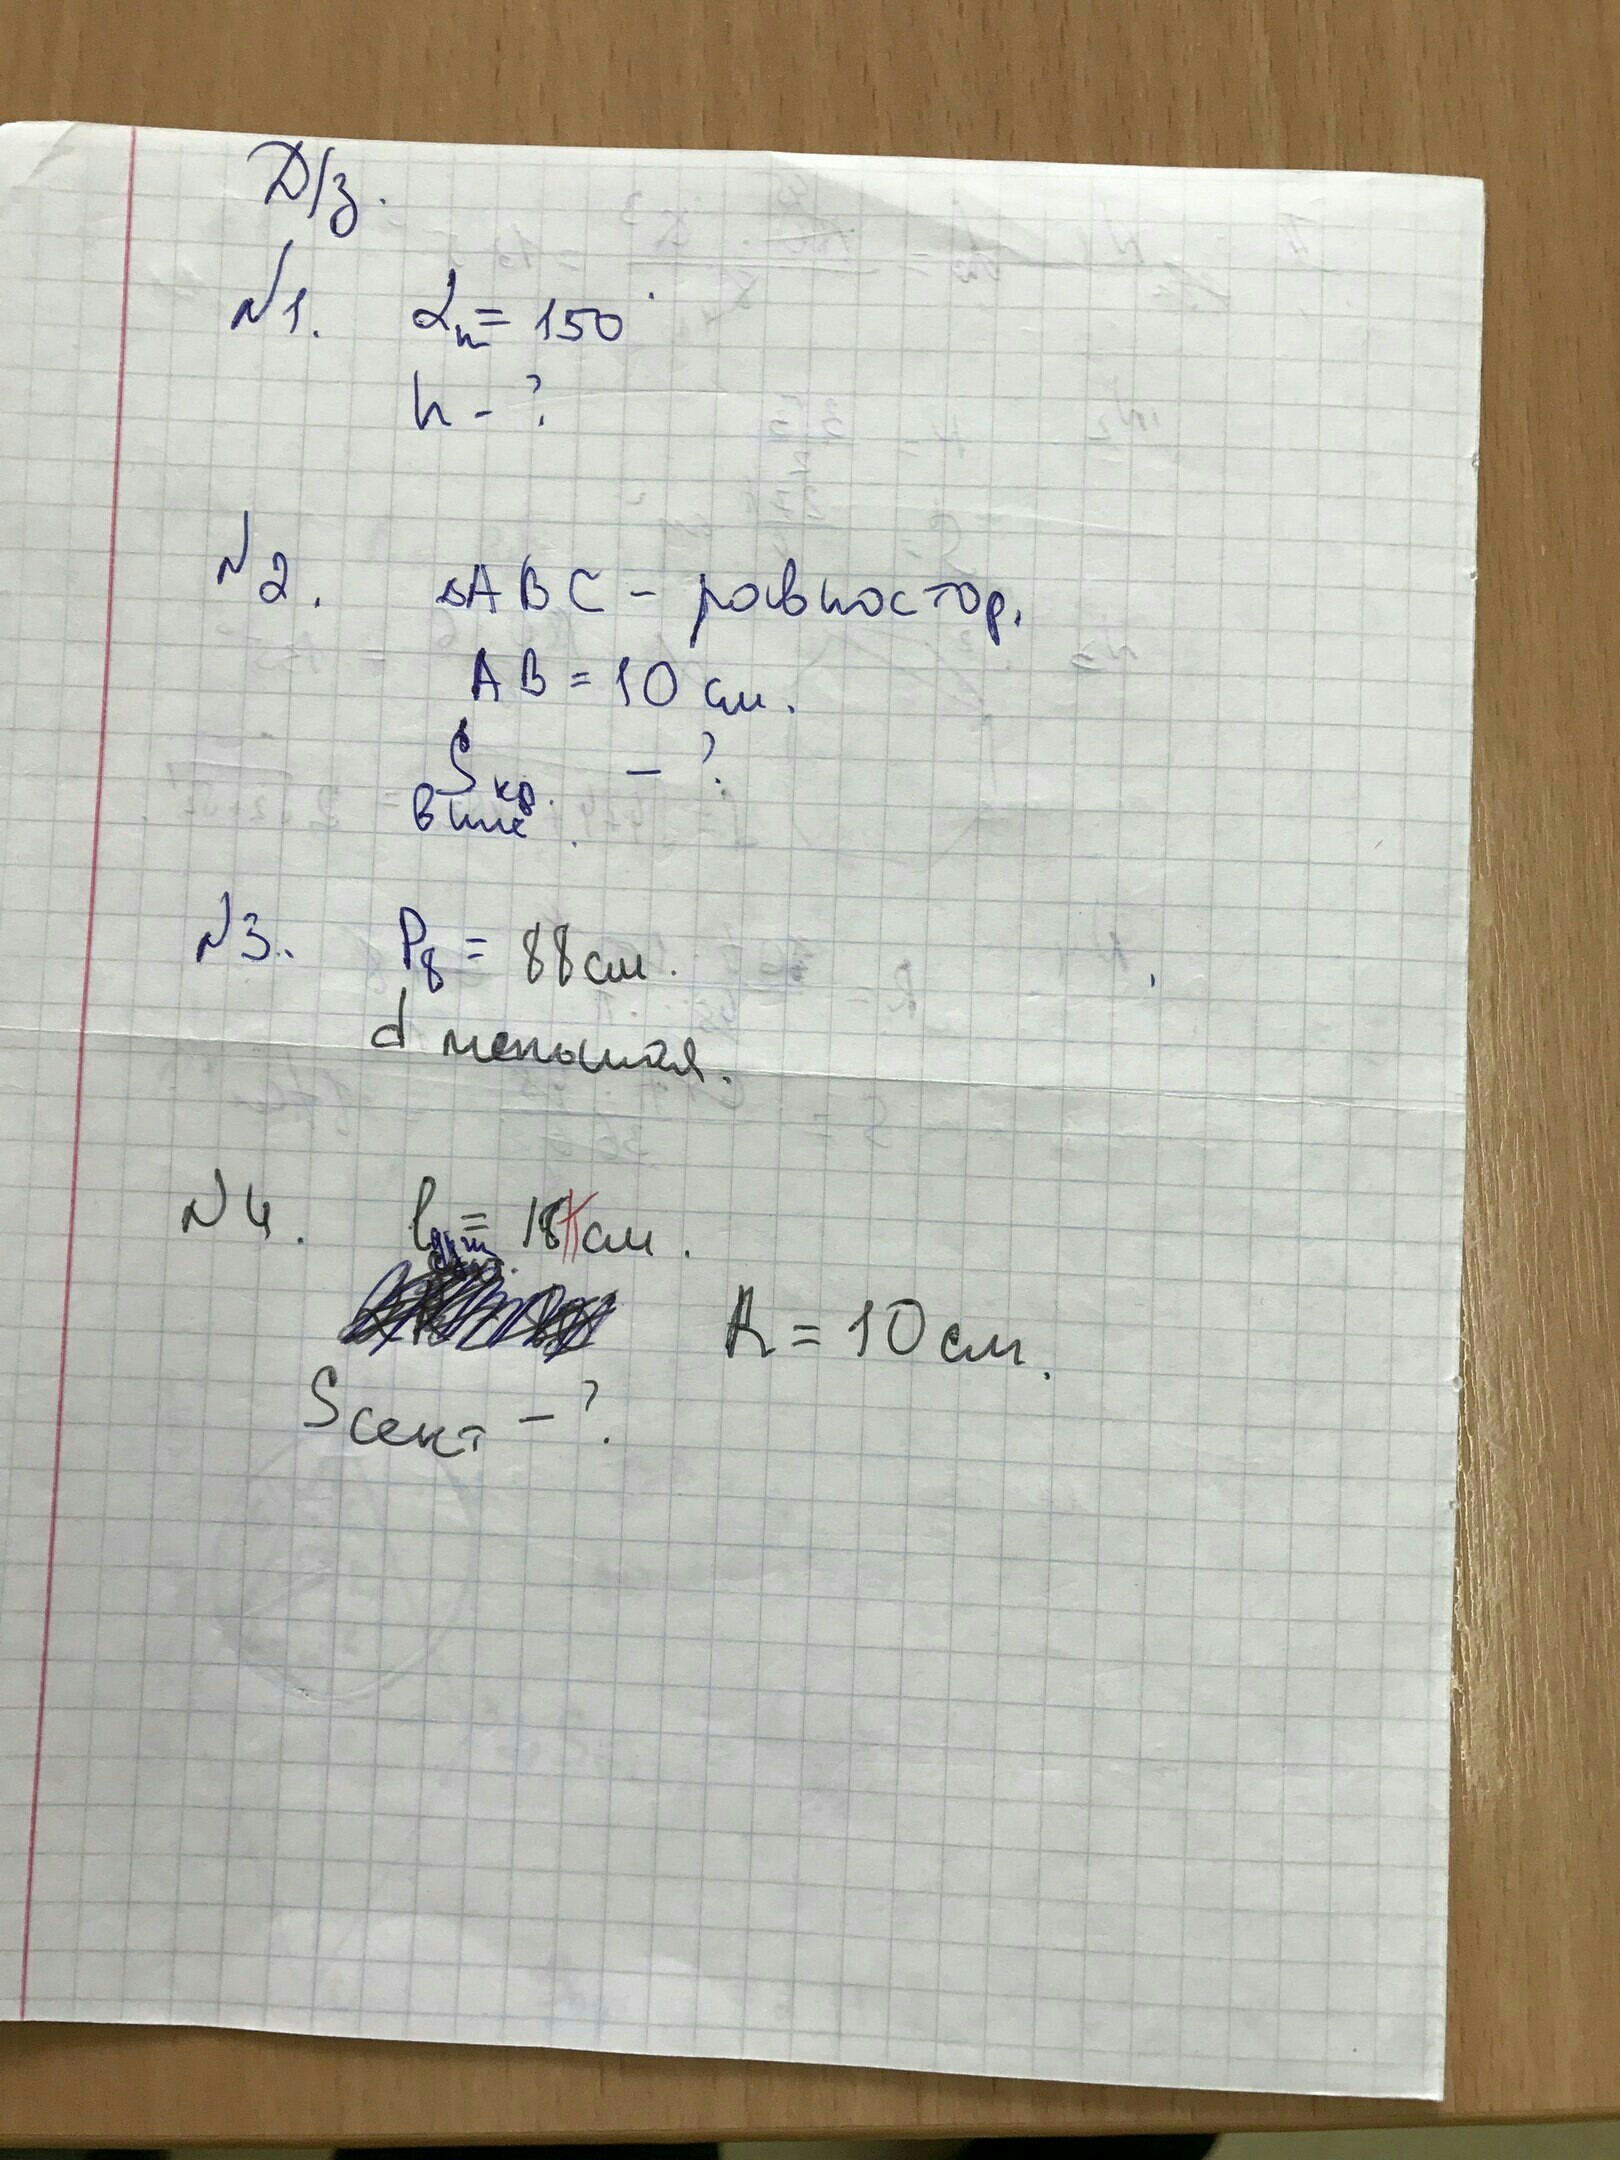 Д/з.
N1. αn = 150°
n - ?
N2. △ABC - равностор.
AB = 10 см.
Sкр. - ?
впис.
N3. P8 = 88 см.
d меньшая.
N4. l = 18π см.
R = 10 см.
Sсект - ?